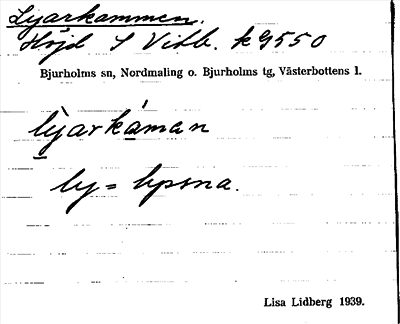 Lyarkammen.
Höjd S Vitb. k 9550
Bjurholms sn, Nordmaling o. Bjurholms tg, Västerbottens l.
lỳarkáman
ly = lyssna.
Lisa Lidberg 1939.